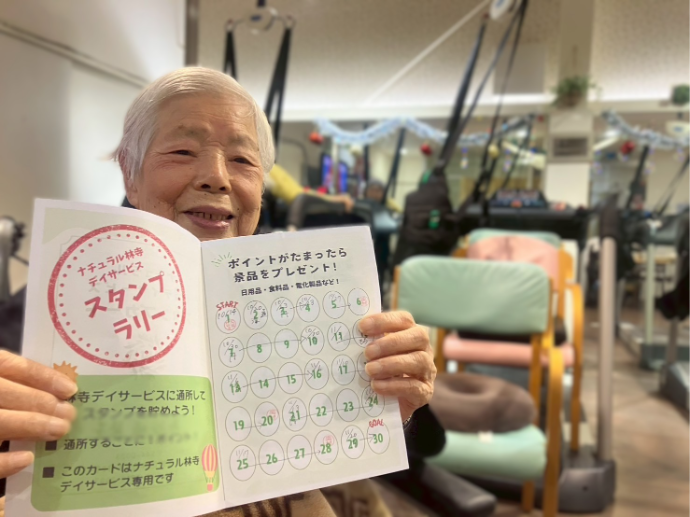 ナチュラル林寺
デイサービス
スタンプ
ラリー
林寺デイサービスに通所して
スタンプを貯めよう！
通所するごとに1ポイント！
■ このカードはナチュラル林寺
デイサービス専用です
ポイントがたまったら
景品をプレゼント！
日用品・食料品・電化製品など！
START
1 2 3 4 5 6
7 8 9 10 11
13 14 15 16 17
19 20 21 22 23 24
25 26 27 28 29 30
GOAL